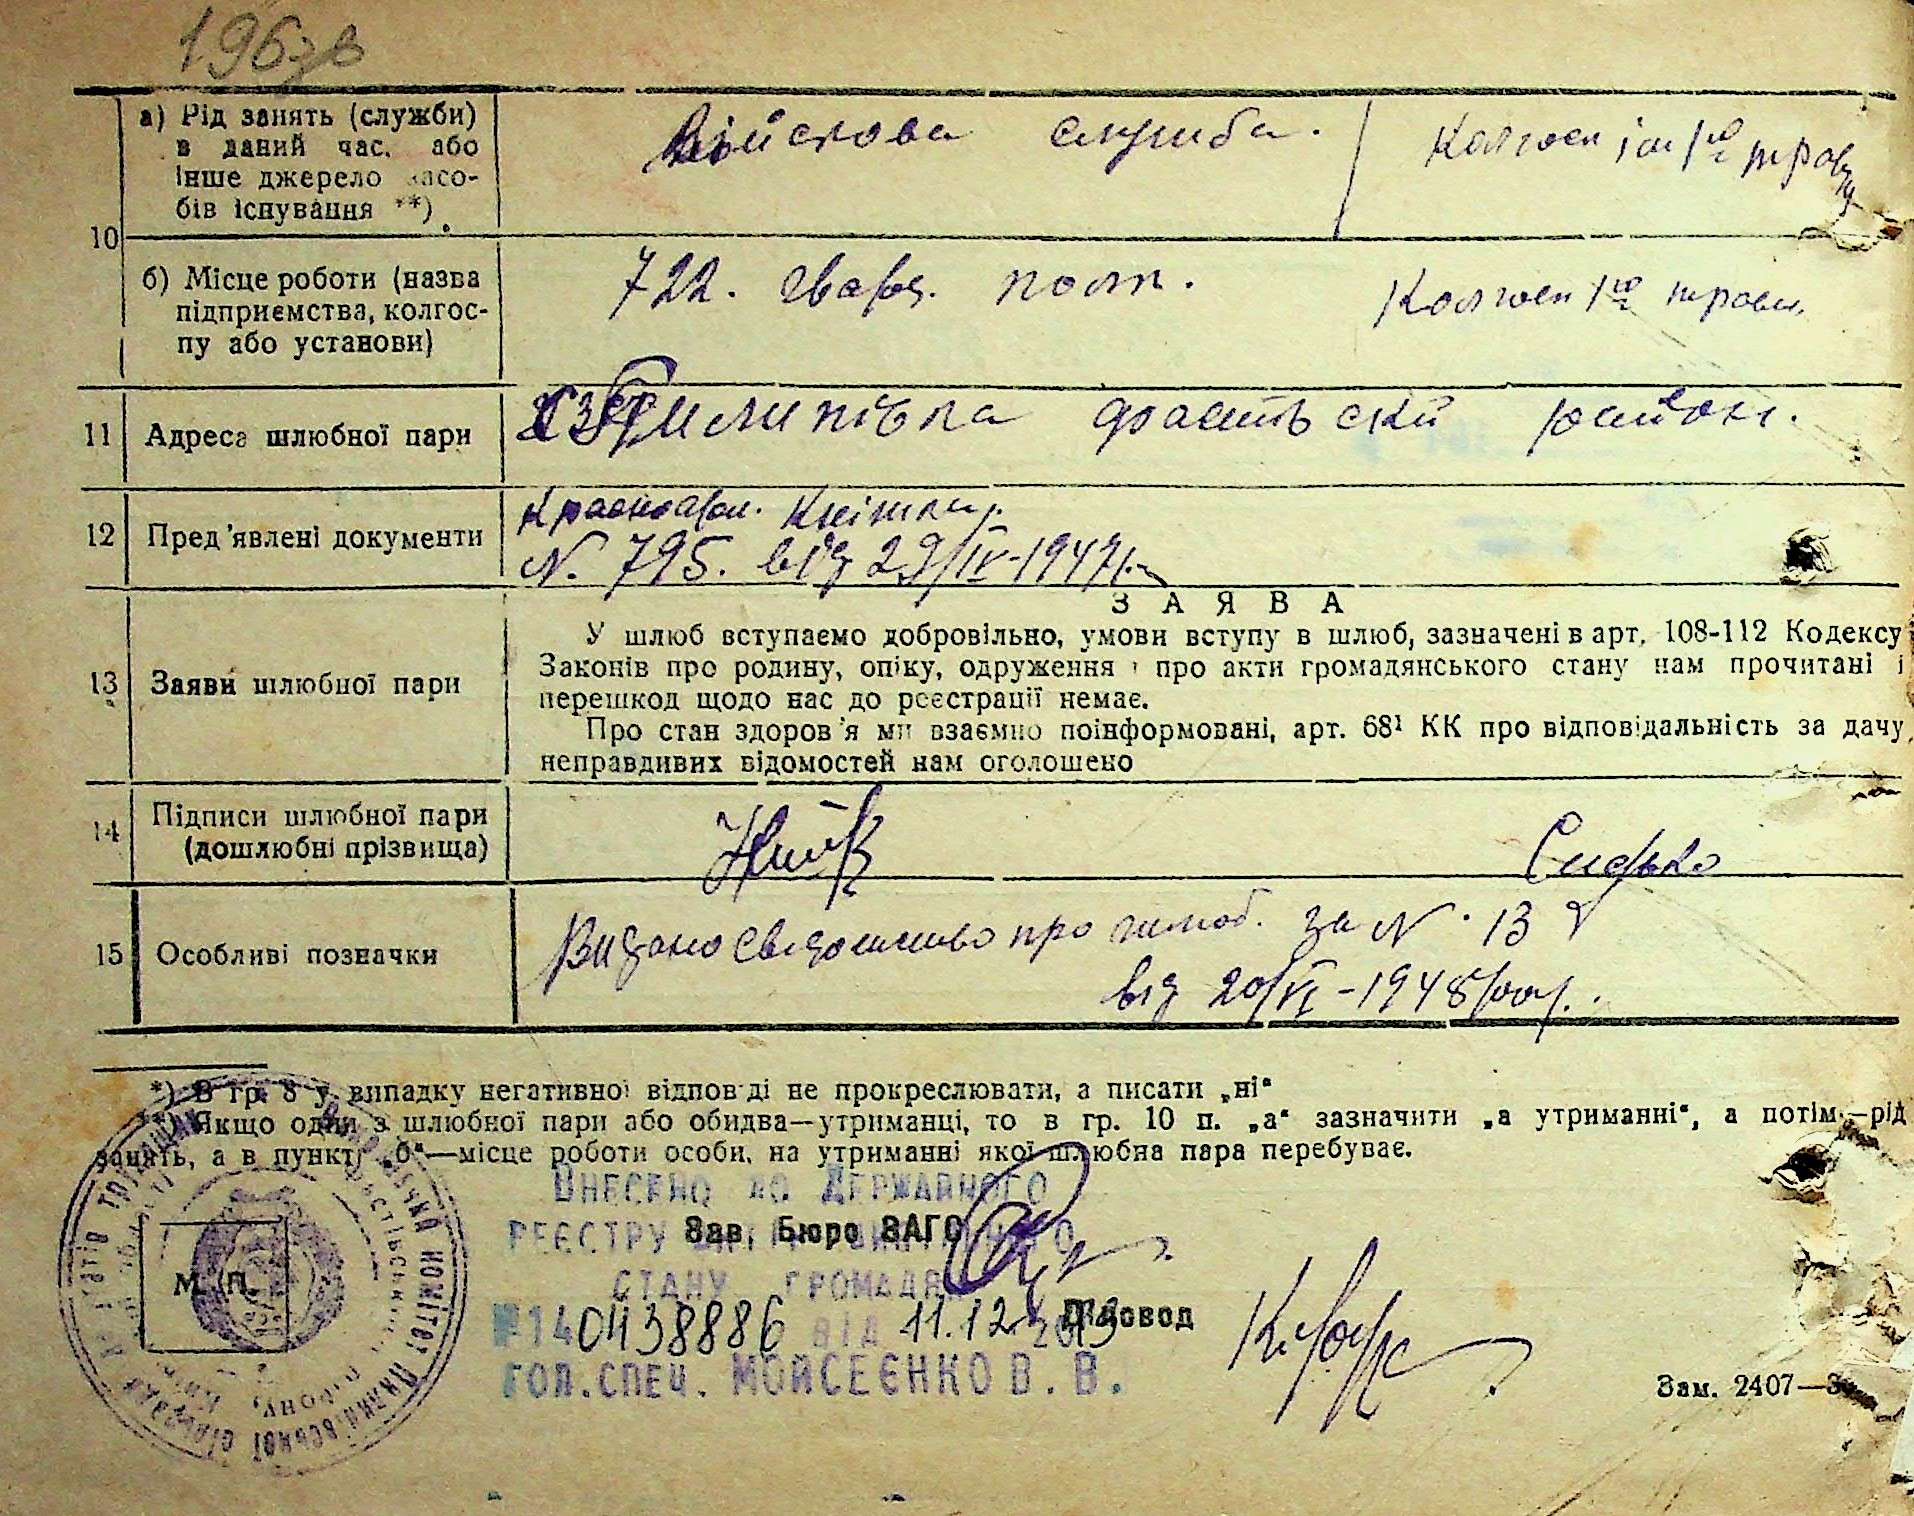 196зв
10
а) Рід занять (служби)
в даний час, або
інше джерело засо-
бів існування **)
Війскова служба.
Колгосп ім 1го
б) Місце роботи (назва
підприємства, колгос-
пу або установи)
722. гвард. полк.
Колгосп 1го травн.
11 Адреса шлюбної пари
район.
12 Пред'явлені документи
Красноарм. Кніжка
N. 795. від 29/IV-1947р.
13 Заяви шлюбної пари
ЗАЯВА
У шлюб вступаємо добровільно, умови вступу в шлюб, зазначені в арт. 108-112 Кодексу
Законів про родину, опіку, одруження і про акти громадянського стану нам прочитані і
перешкод щодо нас до реєстрації немає.
Про стан здоров'я ми взаємно поінформовані, арт. 68¹ КК про відповідальність за дачу
неправдивих відомостей нам оголошено
14 Підписи шлюбної пари
(дошлюбні прізвища)
15 Особливі позначки
Видано свідоцтво про шлюб. за N. 13
від 20/VI-1948 рок.
*) В гр. 8 у випадку негативної відповіді не прокреслювати, а писати „ні“
**) Якщо один з шлюбної пари або обидва—утриманці, то в гр. 10 п. „а“ зазначити „а утриманні“, а потім—рід
занять, а в пункті „б“—місце роботи особи, на утриманні якої шлюбна пара перебуває.
Внесено до Державного
реєстру
Зав. Бюро ЗАГС
стану громадян
М. П.
№140438886 від 11.12 2013
Діловод
гол.спец. Мойсеєнко В. В.
Зам. 2407—3